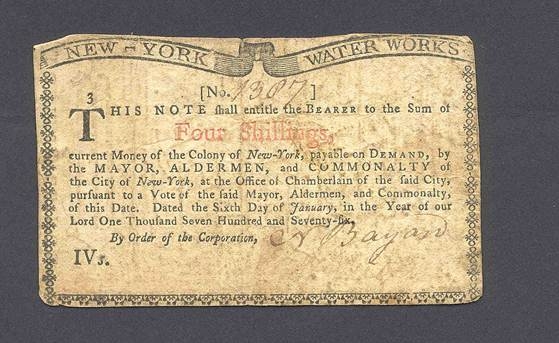 NEW-YORK WATER WORKS
[No. 1387]
3
THIS NOTE ſhall entitle the BEARER to the Sum of
Four Shillings,
current Money of the Colony of New-York, payable on DEMAND, by
the MAYOR, ALDERMEN, and COMMONALTY of
the City of New-York, at the Office of Chamberlain of the ſaid City,
purſuant to a Vote of the ſaid Mayor, Aldermen, and Commonalty,
of this Date. Dated the Sixth Day of January, in the Year of our
Lord One Thouſand Seven Hundred and Seventy-ſix.
By Order of the Corporation, N Bayard
IVs.